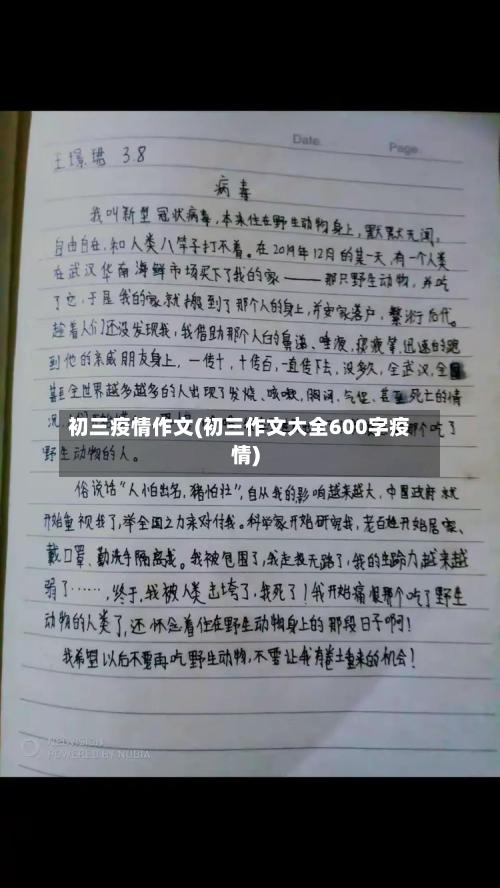 Date
Page
王璟珺 3.8
病毒
我叫新型冠状病毒，本来住在野生动物身上，默默无闻，
自由自在，和人类八竿子打不着。在2019年12月的某一天，有一个人类
在武汉华南海鲜市场买下了我的家——那只野生动物，并吃
了它，于是我的家就搬到了那个人的身上，并安家落户，繁衍后代。
趁着人们还没发现我，我借助那个人的鼻涕、唾液、痰液等，迅速的跑
到他的亲戚朋友身上，一传十，十传百，一直传下去，没多久，全武汉，全国
甚至全世界越多越多的人出现了发烧、咳嗽，胸闷，气促，甚至死亡的情
况
那个吃了
初三疫情作文(初三作文大全600字疫
情)
野生动物的人。
俗说话"人怕出名，猪怕壮"，自从我的影响越来越大，中国政府就
开始重视我了，举全国之力来对付我。科学家开始研究我，老百姓开始居家、
戴口罩、勤洗手隔离我。我被包围了，我走投无路了，我的生命力越来越
弱了……，终于，我被人类击垮了，我死了！我开始痛恨那个吃了野生
动物的人类了，还怀念着住在野生动物身上的那段日子啊！
我希望以后不要再吃野生动物，不要让我有卷土重来的机会！
POWERED BY NUBIA